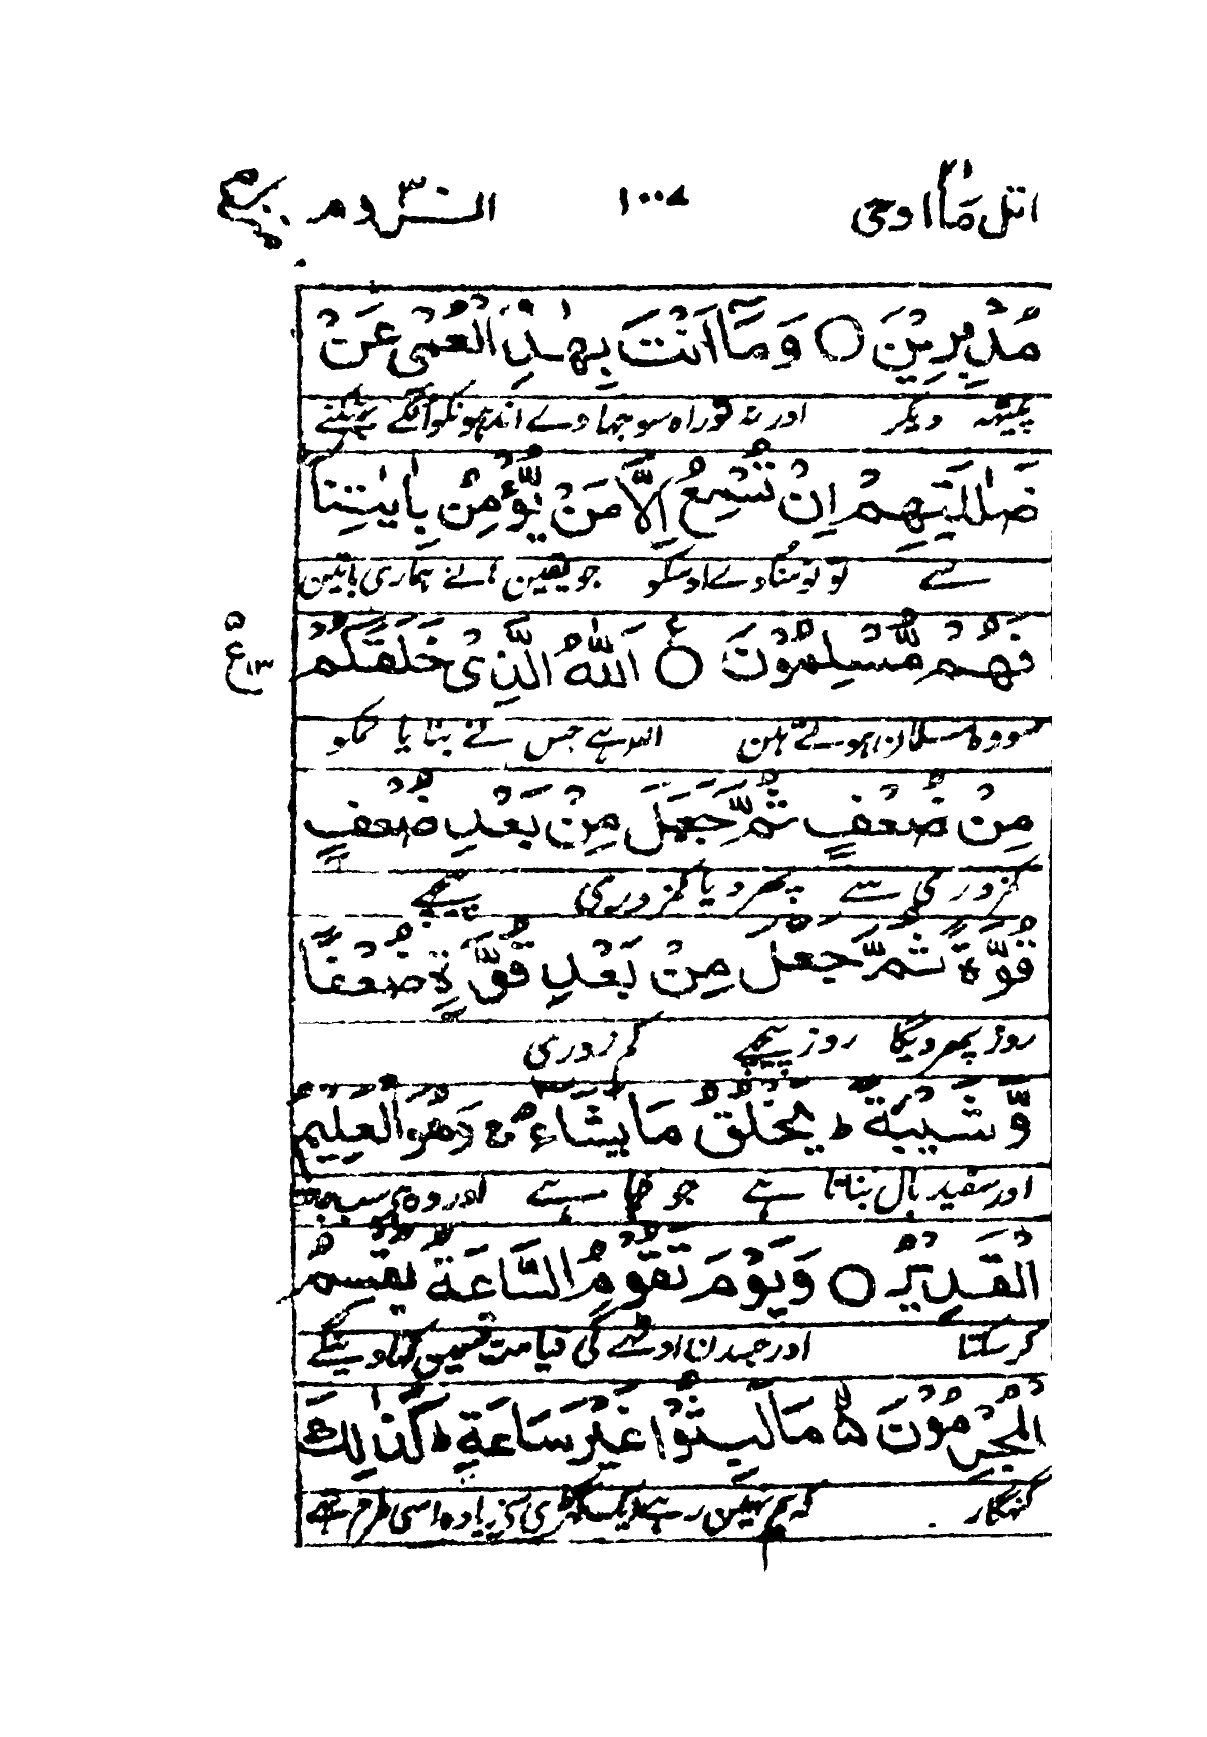 اتل مآ اوحی ۲۱ ۱۰۰۸ الروم ۳۰
مُدْبِرِیْنَ ○ وَمَآ اَنْتَ بِهٰدِ الْعُمْیِ عَنْ
پیٹھہ دیکر اور نہ تو راہ سوجہاوے اندہونکو انکے بھٹکنے
ضَلٰلَتِهِمْ اِنْ تُسْمِعُ اِلَّا مَنْ یُّؤْمِنُ بِاٰیٰتِنَا
سے تو تو سناوے اوسکو جو یقین لائے ہماری باتین
فَهُمْ مُّسْلِمُوْنَ ○ ع اَللّٰهُ الَّذِیْ خَلَقَكُمْ
۵ ع ۱۳
سو وہ مسلمان ہوتے ہین اللہ ہے جس نے بنایا تمکو
مِنْ ضُعْفٍ ثُمَّ جَعَلَ مِنْ بَعْدِ ضُعْفٍ
کمزوری سے پھر دیا کمزوری پیچھے
قُوَّةً ثُمَّ جَعَلَ مِنْ بَعْدِ قُوَّةٍ ضُعْفًا
روز پھر دیگا روز پیچھے کمزوری
وَّشَیْبَةً ط یَخْلُقُ مَا یَشَآءُ ج وَهُوَ الْعَلِیْمُ
اور سفید بال بناتا ہے جو چاہے اور وہ ہی سب جانتا
الْقَدِیْرُ ○ وَیَوْمَ تَقُوْمُ السَّاعَةُ یُقْسِمُ
کر سکتا اور جسدن اوٹھے گی قیامت قسمین کھاوینگے
الْمُجْرِمُوْنَ لا مَا لَبِثُوْا غَیْرَ سَاعَةٍ ط كَذٰلِكَ
گنہگار کہ ہم نہین رہے ایک گھڑی سے زیادہ اسی طرح تھے